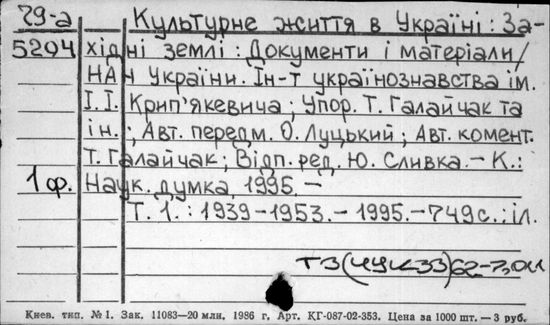 29-а Культурне життя в Україні: За-
5204 хідні землі: Документи і матеріали/
НАН України. Ін-т українознавства ім.
І. І. Крип'якевича; Упор. Т. Галайчак та
ін.; Авт. передм. О. Луцький; Авт. комент.
Т. Галайчак; Відп. ред. Ю. Сливка. — К.:
1 ф. Наук. думка, 1995. —
Т. 1.: 1939—1953. — 1995. — 749 с.: іл.
Т3(4УК33)62-7,011
Киев. тип. № 1. Зак. 11083—20 млн. 1986 г. Арт. КГ-087-02-353. Цена за 1000 шт. — 3 руб.